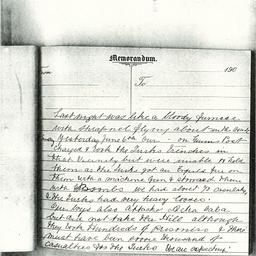 Memorandum.
190
To
Last night was like a bloody furnace
with shrapnel flying about
Yesterday June 6th our on Quinns Post
Charged & took the Turks trenches in
that vicinity but were unable to hold
them as the Turks got an on
them with a machine Gun & stormed them
with Bombs we had about 70 casualties
& The Turks had very heavy losses.
Our boys also attack Achi Baba
but did not take the Hill although
they took Hundreds of prisoners & there
must have been some thousand of
casualties for the Turks